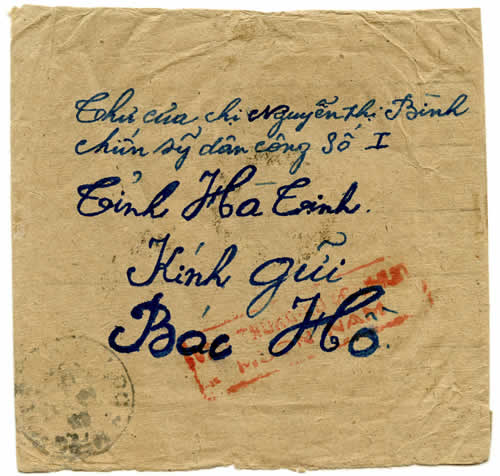 Thư của chị Nguyễn Thị Bình
chiến sỹ dân công số I
Tỉnh Hà Tĩnh.
Kính gửi
Bác Hồ.
NAM